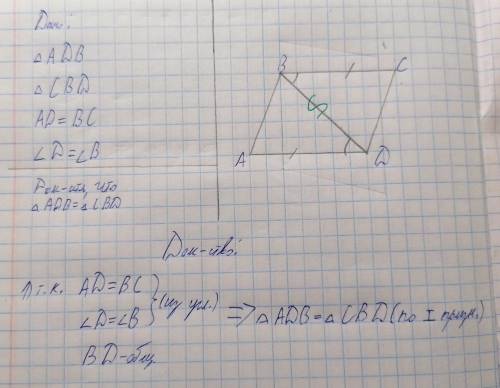 Дано:
△ADB
△CBD
AD=BC
∠D=∠B
Док-ть, что
△ADB=△CBD
B C
A D
Док-тво:
1) т.к. AD=BC
∠D=∠B
(из усл.)
BD-общ
=> △ADB=△CBD (по I призн.)